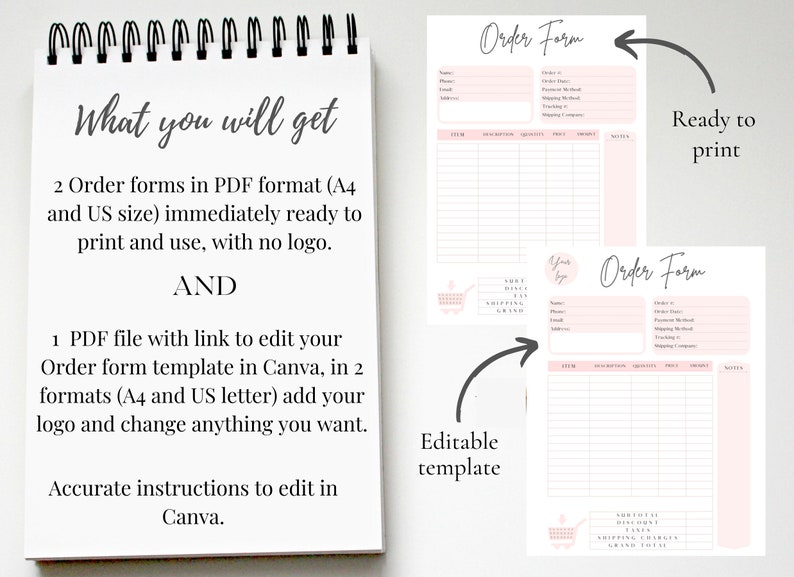 What you will get
2 Order forms in PDF format (A4
and US size) immediately ready to
print and use, with no logo.
AND
1 PDF file with link to edit your
Order form template in Canva, in 2
formats (A4 and US letter) add your
logo and change anything you want.
Accurate instructions to edit in
Canva.
Order Form
Name:
Phone:
Email:
Address:
Order #:
Order Date:
Payment Method:
Shipping Method:
Tracking #:
Shipping Company:
ITEM DESCRIPTION QUANTITY PRICE AMOUNT NOTES
SUBT
DISCO
TAX
SHIPPING
GRAND
Ready to
print
Your
logo
Order Form
Name:
Phone:
Email:
Address:
Order #:
Order Date:
Payment Method:
Shipping Method:
Tracking #:
Shipping Company:
ITEM DESCRIPTION QUANTITY PRICE AMOUNT NOTES
SUBTOTAL
DISCOUNT
TAXES
SHIPPING CHARGES
GRAND TOTAL
Editable
template